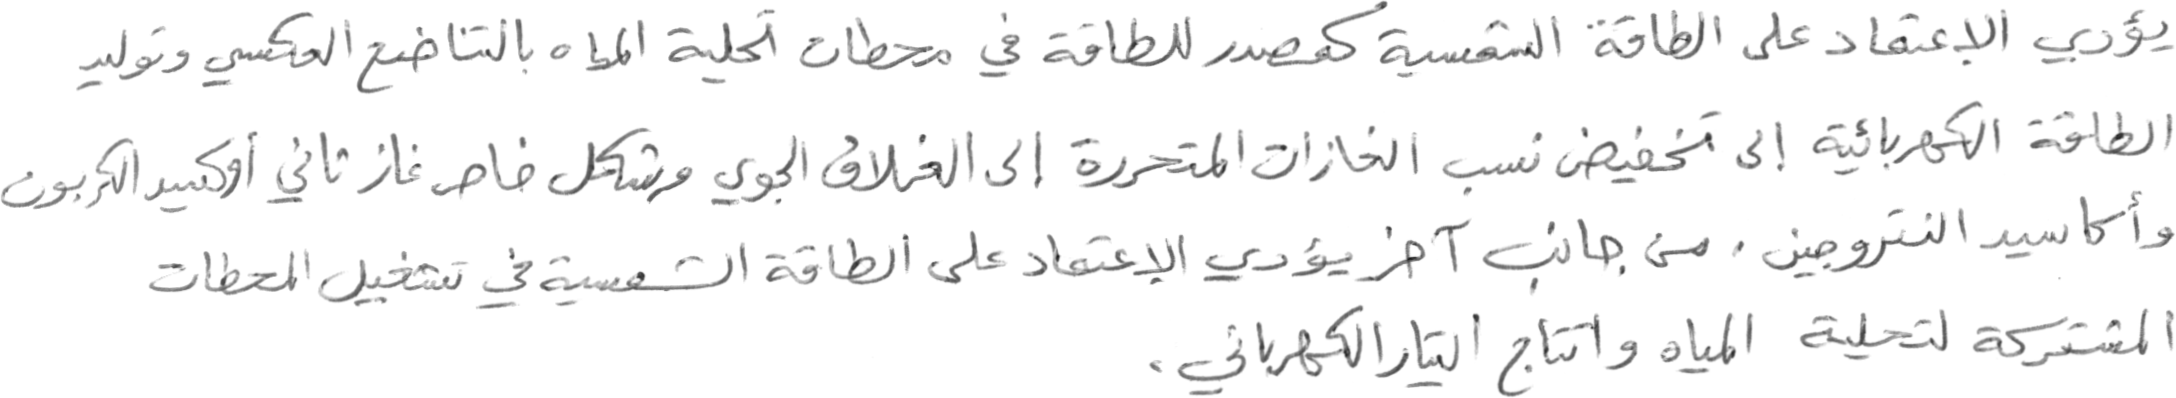 يؤدي الإعتماد على الطاقة الشمسية كمصدر للطاقة في محطات تحلية المياه بالتناضح العكسي وتوليد
الطاقة الكهربائية إلى تخفيض نسب الغازات المتحررة إلى الغلاف الجوي وبشكل خاص غاز ثاني أوكسيد الكربون
وأكاسيد النتروجين . من جانب آخر يؤدي الإعتماد على الطاقة الشمسية في تشغيل المحطات
المشتركة لتحلية المياه وانتاج التيار الكهربائي .